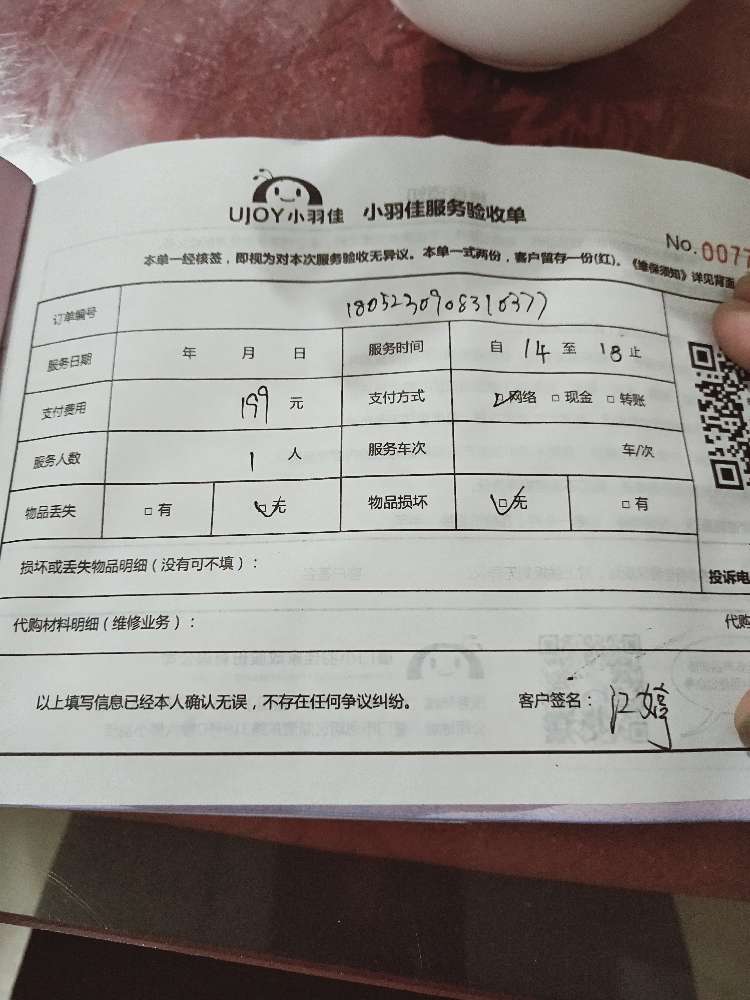 UJOY小羽佳 小羽佳服务验收单
No.0077
本单一经核签，即视为对本次服务验收无异议。本单一式两份，客户留存一份(红)。《维保须知》详见背面
订单编号 1805230908310377
服务日期 年 月 日 服务时间 自 14 至 18 止
支付费用 199 元 支付方式 □网络 □现金 □转账
服务人数 1 人 服务车次 车/次
物品丢失 □有 □无 物品损坏 □无 □有
损坏或丢失物品明细（没有可不填）：
投诉电
代购材料明细（维修业务）： 代购
以上填写信息已经本人确认无误，不存在任何争议纠纷。 客户签名：江婷